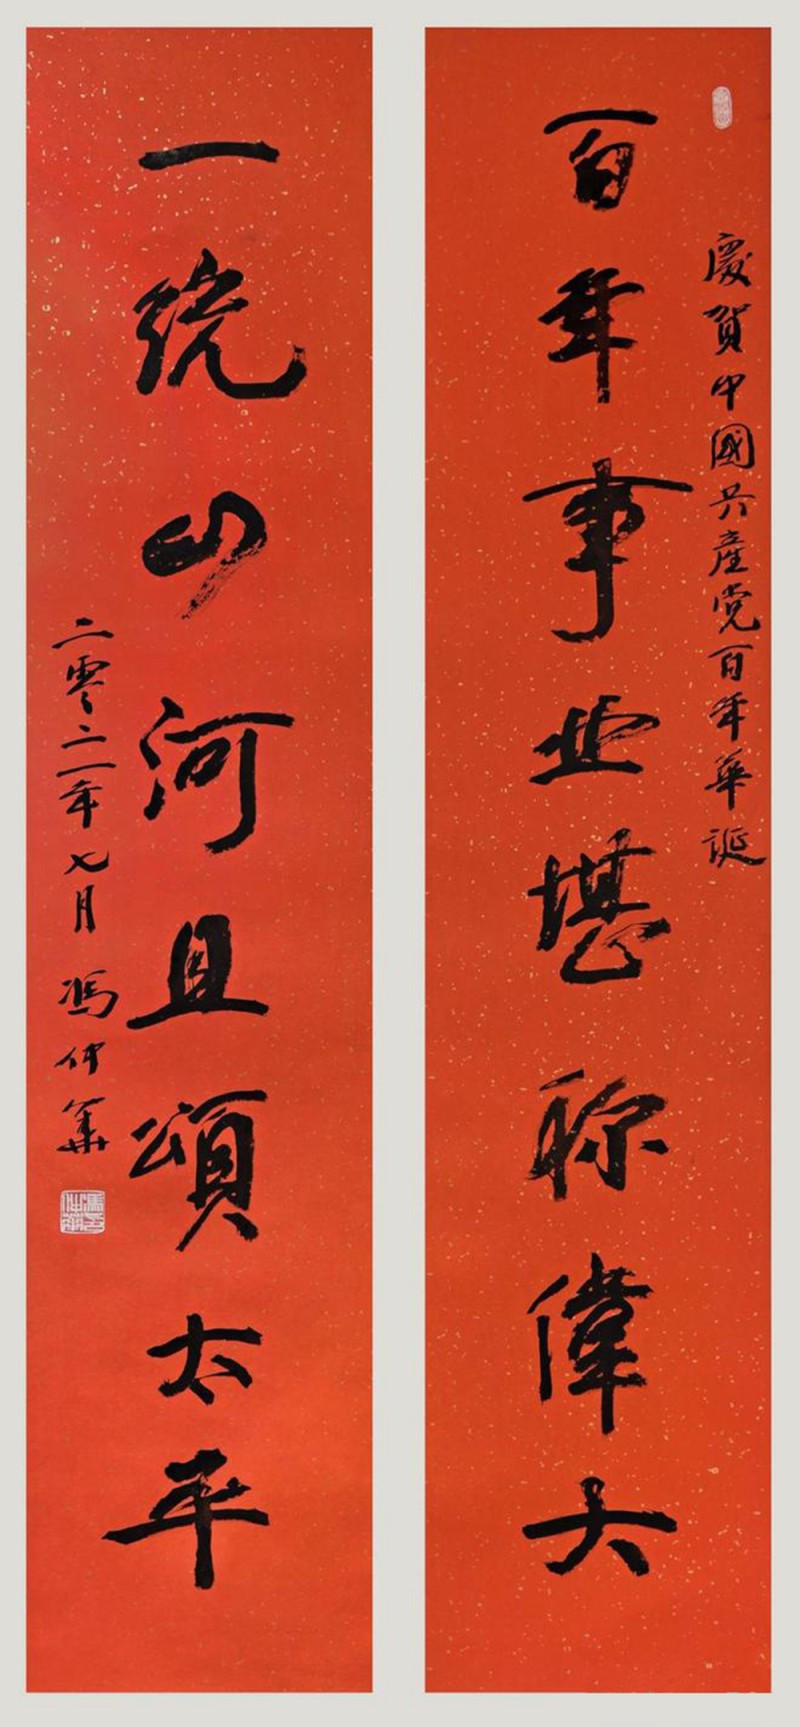 慶賀中國共産党百年華誕
百年事业堪称偉大
一統山河且頌太平
二零二一年七月 馮仲華